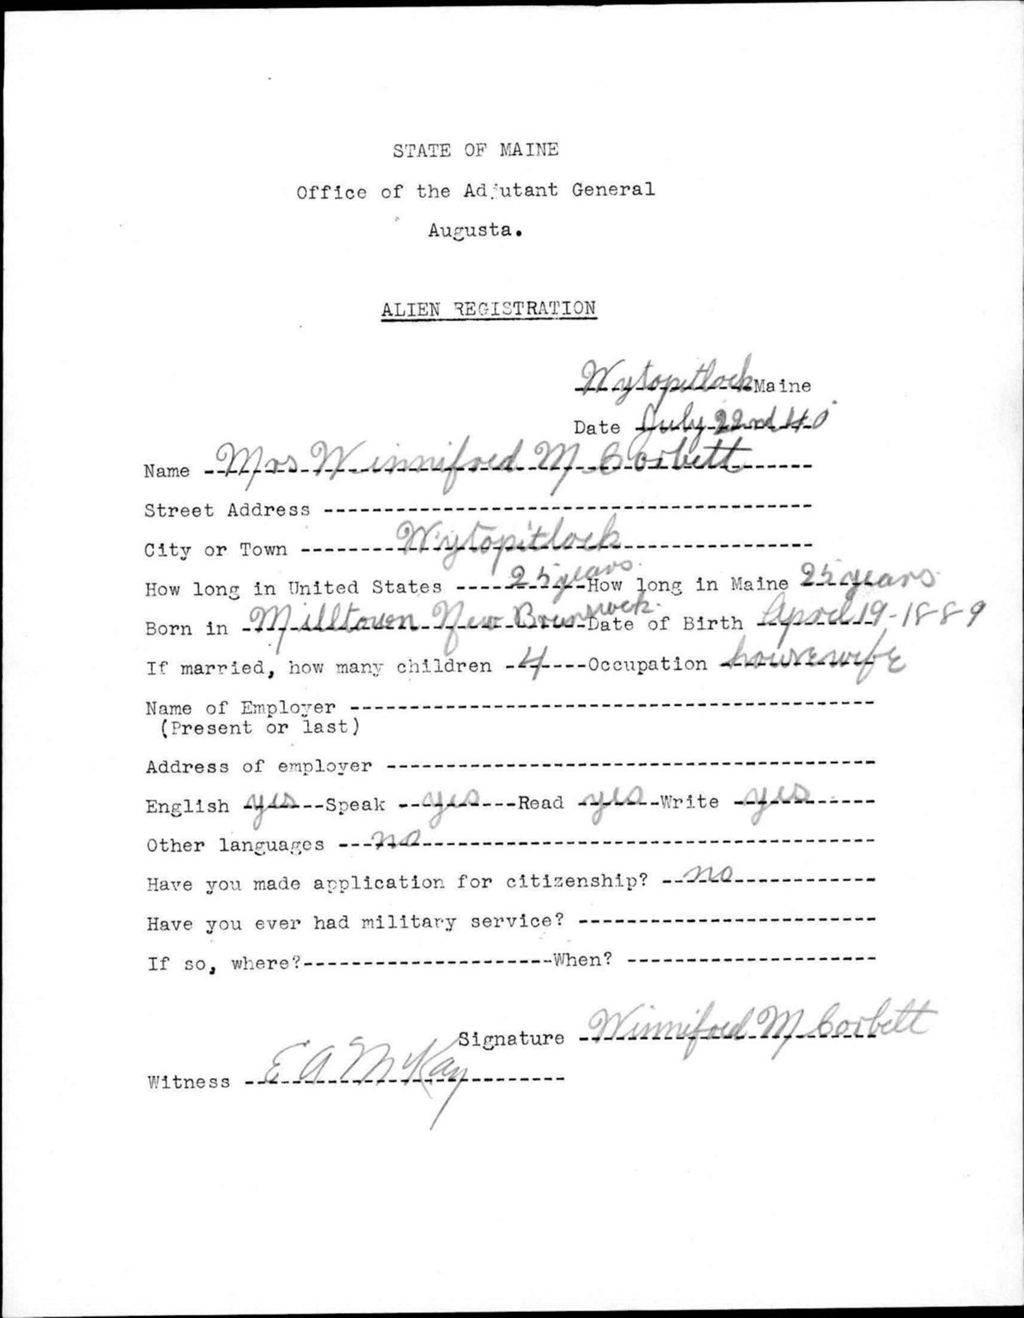 STATE OF MAINE
Office of the Adjutant General
Augusta.
ALIEN REGISTRATION
Wytopitlock Maine
Date July 22nd 40
Name Mrs Winnifred M Corbett
Street Address
City or Town Wytopitlock
How long in United States 25 years. How long in Maine 25 years
Born in Milltown New Brunswick. Date of Birth April 19-1889
If married, how many children 4 Occupation housewife
Name of Employer
(Present or last)
Address of employer
English yes Speak yes Read yes Write yes
Other languages no
Have you made application for citizenship? no
Have you ever had military service?
If so, where? When?
Signature Winnifred M Corbett
Witness E A McKay